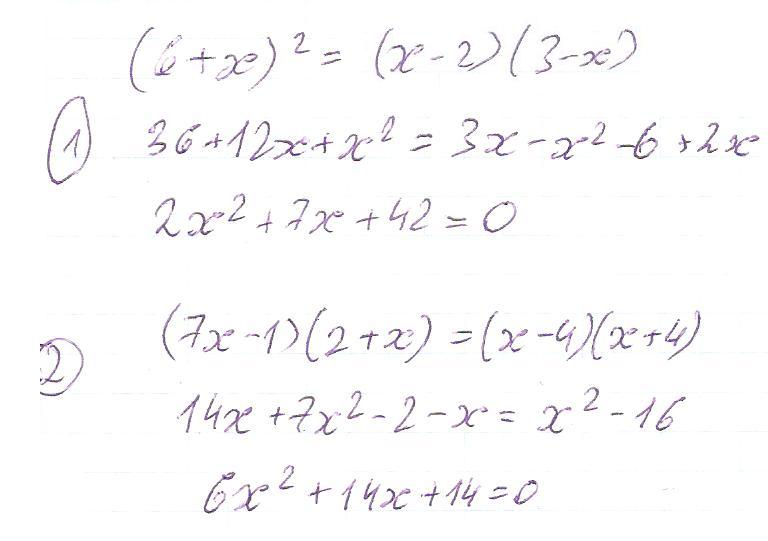 (6+x)² = (x-2)(3-x)
① 36+12x+x² = 3x-x²-6+2x
2x²+7x+42=0
② (7x-1)(2+x)=(x-4)(x+4)
14x+7x²-2-x= x²-16
6x²+14x+14=0